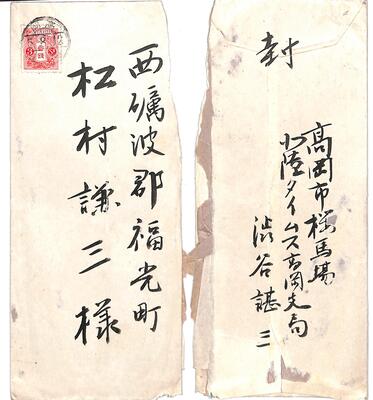 西礪波郡福光町
松村謙三様
封
高岡市桜馬場
北陸タイムス高岡支局
渋谷諶三